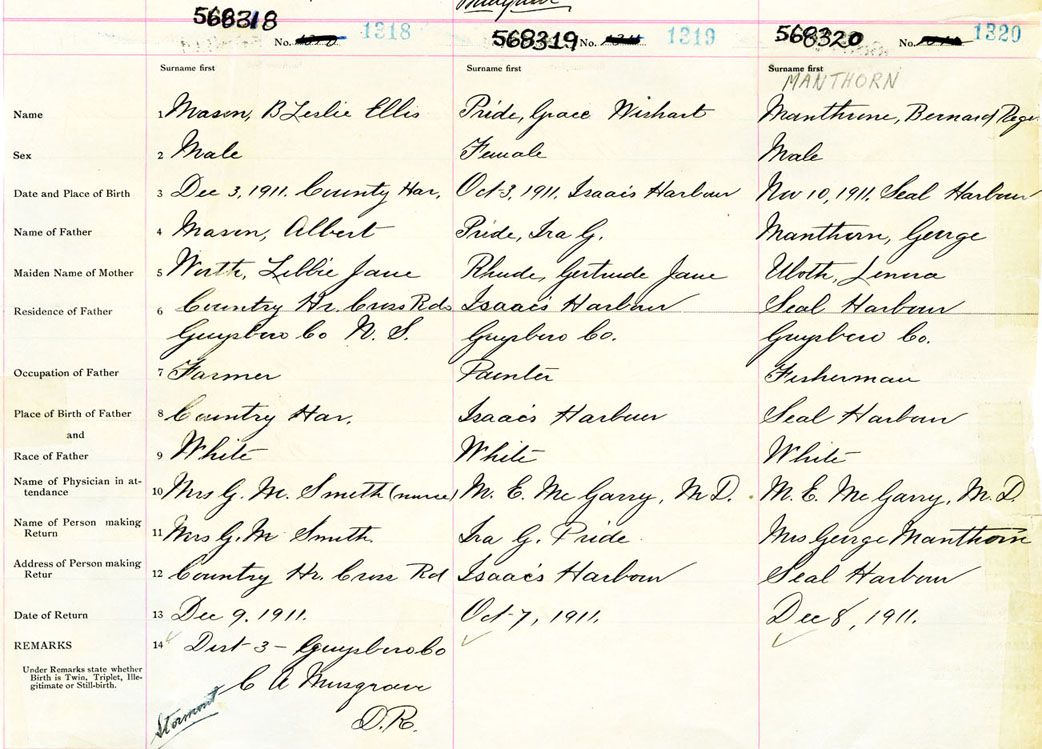 Musgrave
568318 No. 1318
568319 No. 1319
568320 No. 1320
Surname first Surname first Surname first
MANTHORN
Name 1 Mason, B Leslie Ellis Pride, Grace Wishart Manthorne, Bernard Roge
Sex 2 Male Female Male
Date and Place of Birth 3 Dec 3, 1911. County Har. Oct 3, 1911, Isaacs Harbour Nov 10, 1911, Seal Harbour
Name of Father 4 Mason, Albert Pride, Ira G. Manthorn, George
Maiden Name of Mother 5 Worth, Libbie Jane Rhude, Gertrude Jane Uloth, Lenora
Residence of Father 6 Country Hr. Cross Rds Isaac's Harbour Seal Harbour
Guysboro Co N. S. Guysboro Co. Guysboro Co.
Occupation of Father 7 Farmer Painter Fisherman
Place of Birth of Father 8 Country Har. Isaac's Harbour Seal Harbour
and
Race of Father 9 White White White
Name of Physician in at-
tendance 10 Mrs G. M. Smith (nurse) M. E. McGarry, M D. M. E. McGarry, M. D
Name of Person making
Return 11 Mrs G. M Smith Ira G. Pride Mrs George Manthorn
Address of Person making
Retur 12 Country Hr. Cross Rd Isaac's Harbour Seal Harbour
Date of Return 13 Dec 9, 1911. Oct 7, 1911. Dec 8, 1911.
REMARKS 14 Dist 3 - Guysboro Co
Under Remarks state whether
Birth is Twin, Triplet, Ille-
gitimate or Still-birth.
C A Musgrave
Stormont
D.R.